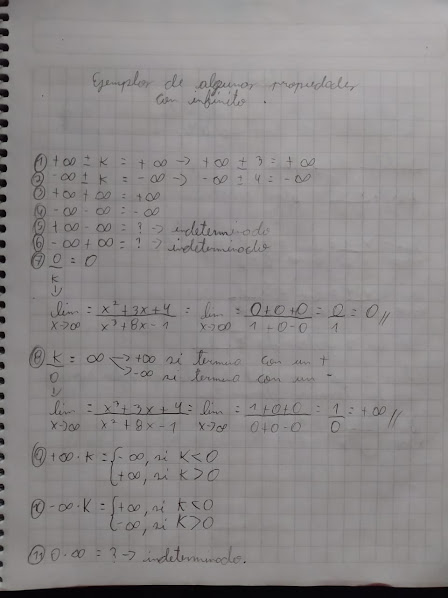 Ejemplos de algunas propiedades
con infinito.
① +∞ ± K = +∞ → +∞ ± 3 = +∞
② -∞ ± K = -∞ → -∞ ± 4 = -∞
③ +∞ +∞ = +∞
④ -∞ -∞ = -∞
⑤ +∞ -∞ = ? → indeterminado
⑥ -∞ +∞ = ? → indeterminado
⑦ 0/K = 0
↓
lim x→∞ = (x²+3x+4)/(x³+8x-1) = lim x→∞ = (0+0+0)/(1+0-0) = 0/1 = 0//
⑧ K/0 = ∞ → +∞ si termina con un +
→ -∞ si termina con un -
↓
lim x→∞ = (x³+3x+4)/(x²+8x-1) = lim x→∞ = (1+0+0)/(0+0-0) = 1/0 = +∞//
⑨ +∞·K = { -∞, si K<0
+∞, si K>0
⑩ -∞·K = { +∞, si K<0
-∞, si K>0
⑪ 0·∞ = ? → indeterminado.